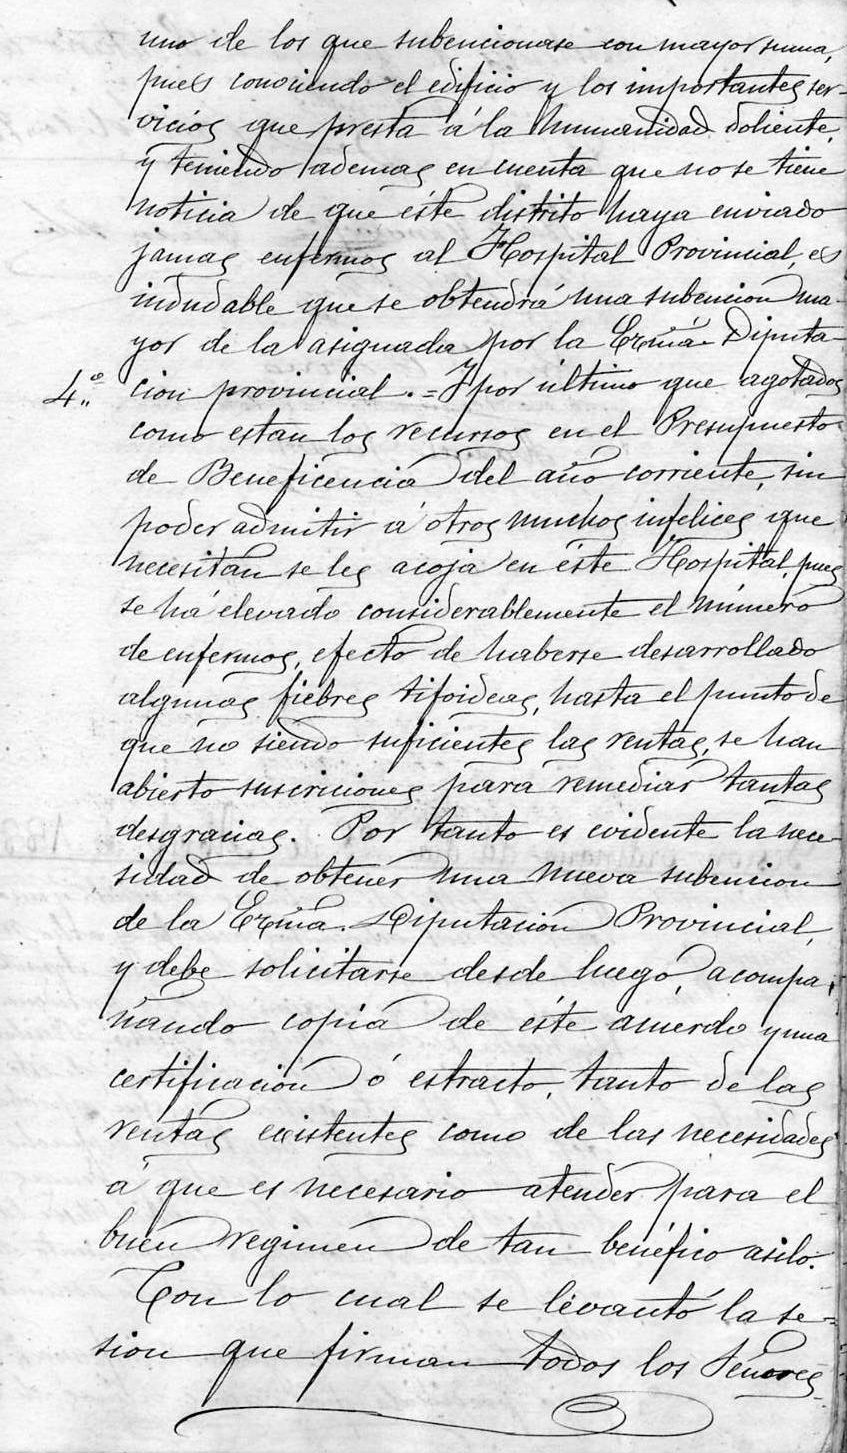 uno de los que subencionase con mayor suma,
pues conociendo el edificio y los importantes ser-
vicios que presta á la humanidad doliente,
y teniendo ademas en cuenta que no se tiene
noticia de que éste distrito haya enviado
jamas enfermos al Hospital Provincial, es
indudable que se obtendrá una subencion ma-
yor de la asignada por la Ecxmâ. Diputa-
4.º cion provincial. = Y por último que agotados
como estan los recursos en el Presupuesto
de Beneficencia del año corriente, sin
poder admitir á otros muchos infelices que
necesitan se les acoja en éste Hospital, pues
se há elevado considerablemente el número
de enfermos, efecto de haberse desarrollado
algunas fiebres tifoideas, hasta el punto de
que no siendo suficientes las rentas, se han
abierto suscriciones para remediar tantas
desgracias. Por tanto es evidente la nece-
sidad de obtener una nueva subencion
de la Ecxmâ. Diputacion Provincial,
y debe solicitarse desde luego, acompa-
ñando copia de éste acuerdo y una
certificacion ó estracto, tanto de las
rentas existentes como de las necesidades
á que es necesario atender para el
buen regimen de tan benéfico asilo.
Con lo cual se levantó la se-
sion que firman todos los Señores